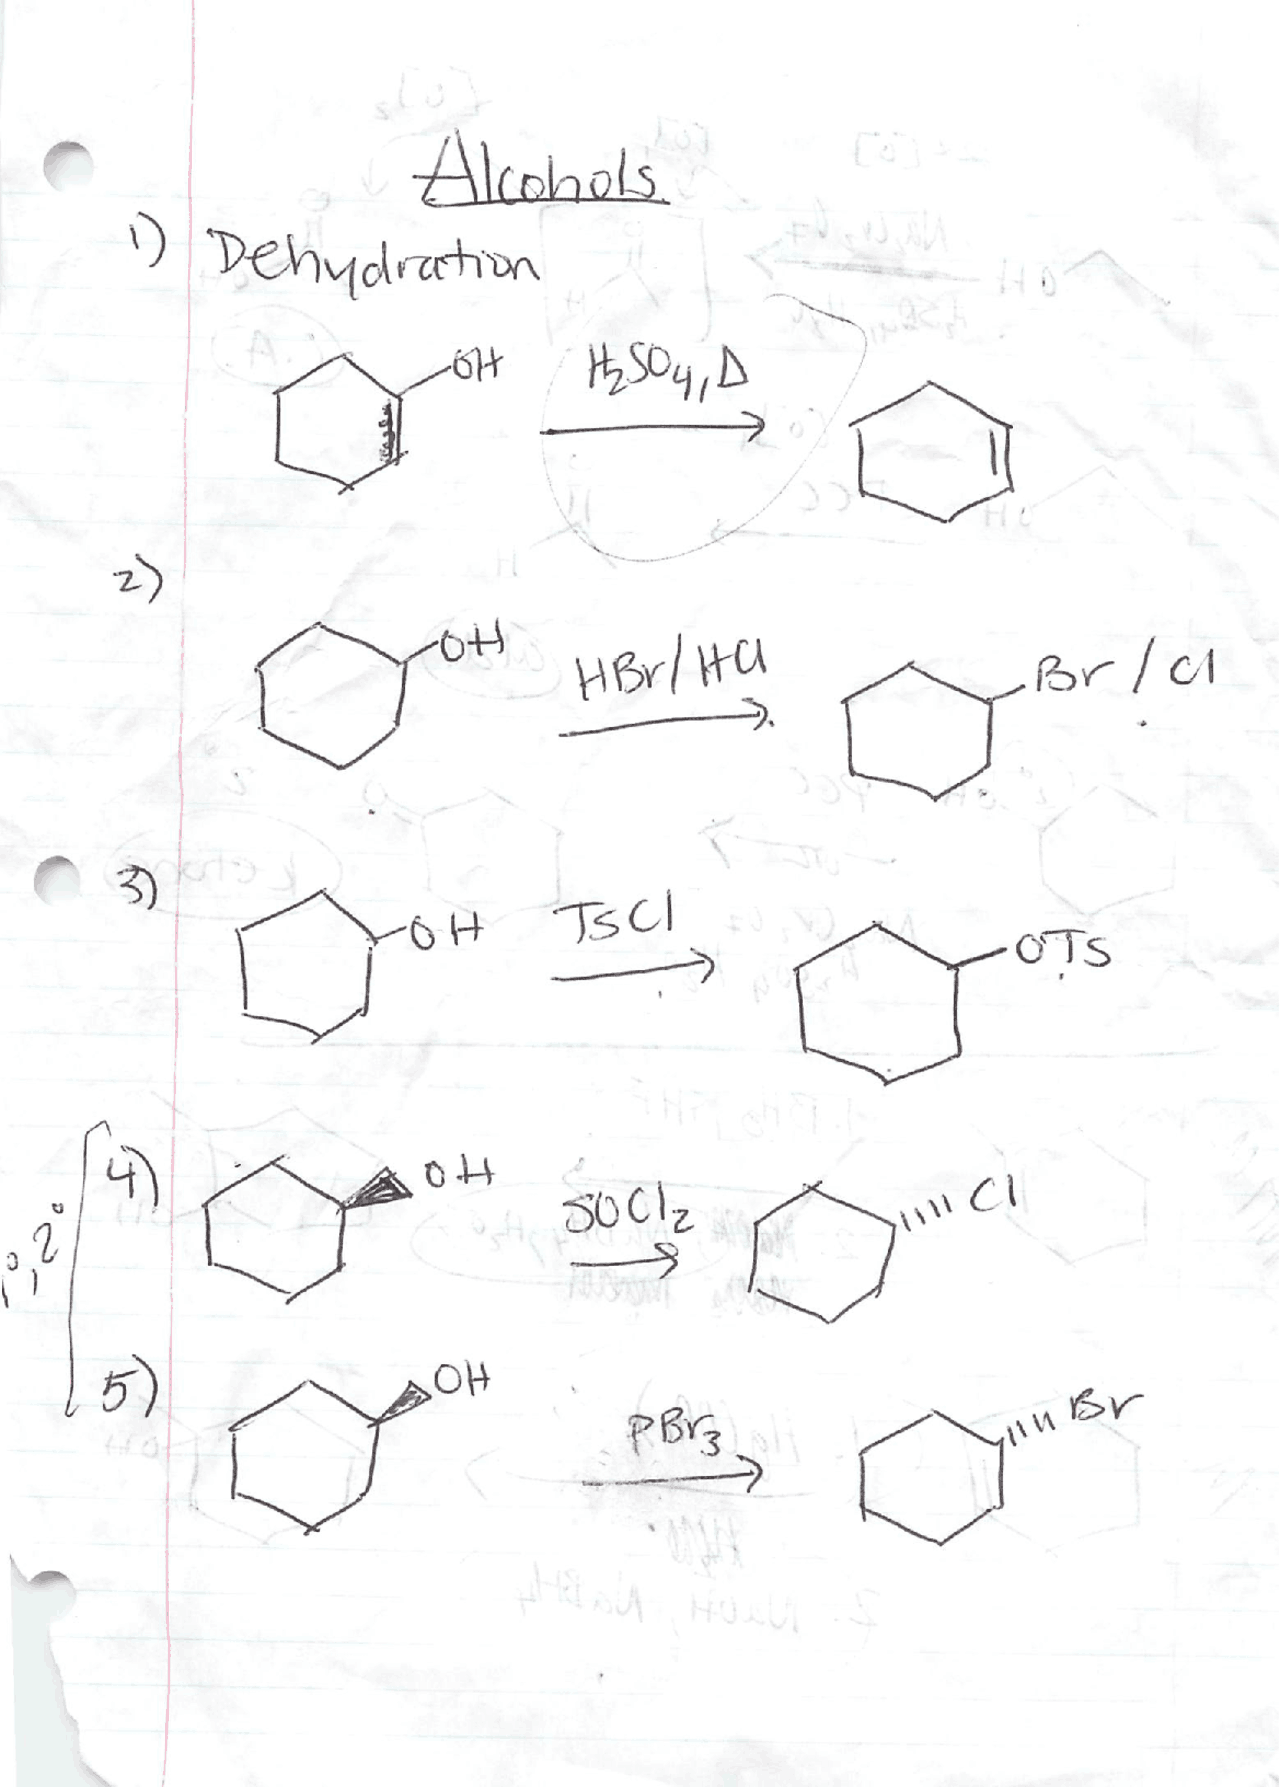 Alcohols
1) Dehydration
OH H₂SO₄, Δ
2)
OH HBr/HCl Br / Cl
3)
OH TsCl OTs
4) OH SOCl₂ Cl
1°, 2°
5) OH PBr₃ Br